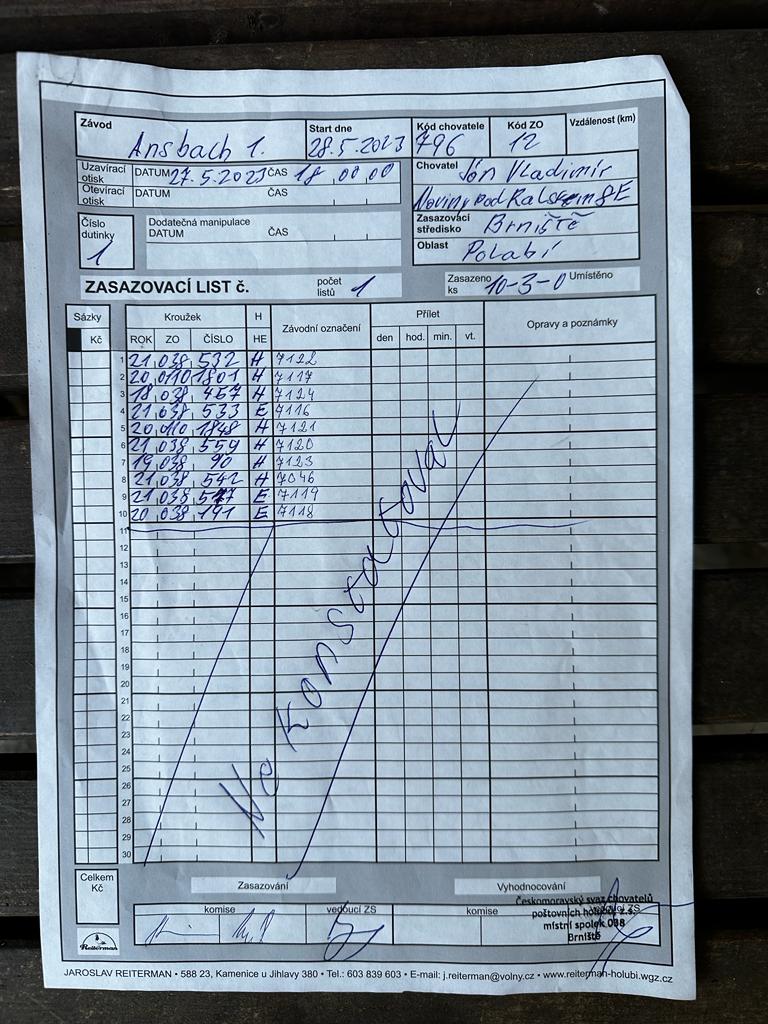 Závod Start dne Kód chovatele Kód ZO Vzdálenost (km)
Ansbach 1. 28.5.2023 796 12
Uzavírací otisk DATUM 27.5.2023 ČAS 18 00 00
Chovatel Jón Vladimír
Otevírací otisk DATUM ČAS
Noviny pod Ralskem 8E
Číslo dutinky 1
Dodatečná manipulace
DATUM ČAS
Zasazovací středisko Brniště
Oblast Polabí
ZASAZOVACÍ LIST č. počet listů 1 Zasazeno ks 10-3-0 Umístěno
Sázky Kroužek H Závodní označení Přílet Opravy a poznámky
Kč ROK ZO ČÍSLO HE den hod. min. vt.
1 21 038 532 H 7122
2 20 0110 1801 H 7117
3 18 038 457 H 7124
4 21 038 533 E 7116
5 20 0110 1848 H 7121
6 21 038 559 H 7120
7 19 038 90 H 7123
8 21 038 542 H 7046
9 21 038 E 7119
10 20 038 191 E 7118
11
12
13
14
15
16
17
18
19
20
21
22
23
24
25
26
27
28
29
30
Ne konstatoval
Celkem Kč
Zasazování Vyhodnocování
komise vedoucí ZS komise vedoucí ZS
Českomoravský svaz chovatelů
poštovních holubů, z.s.
místní spolek 038
Brniště
Reiterman
JAROSLAV REITERMAN • 588 23, Kamenice u Jihlavy 380 • Tel.: 603 839 603 • E-mail: j.reiterman@volny.cz • www.reiterman-holubi.wgz.cz